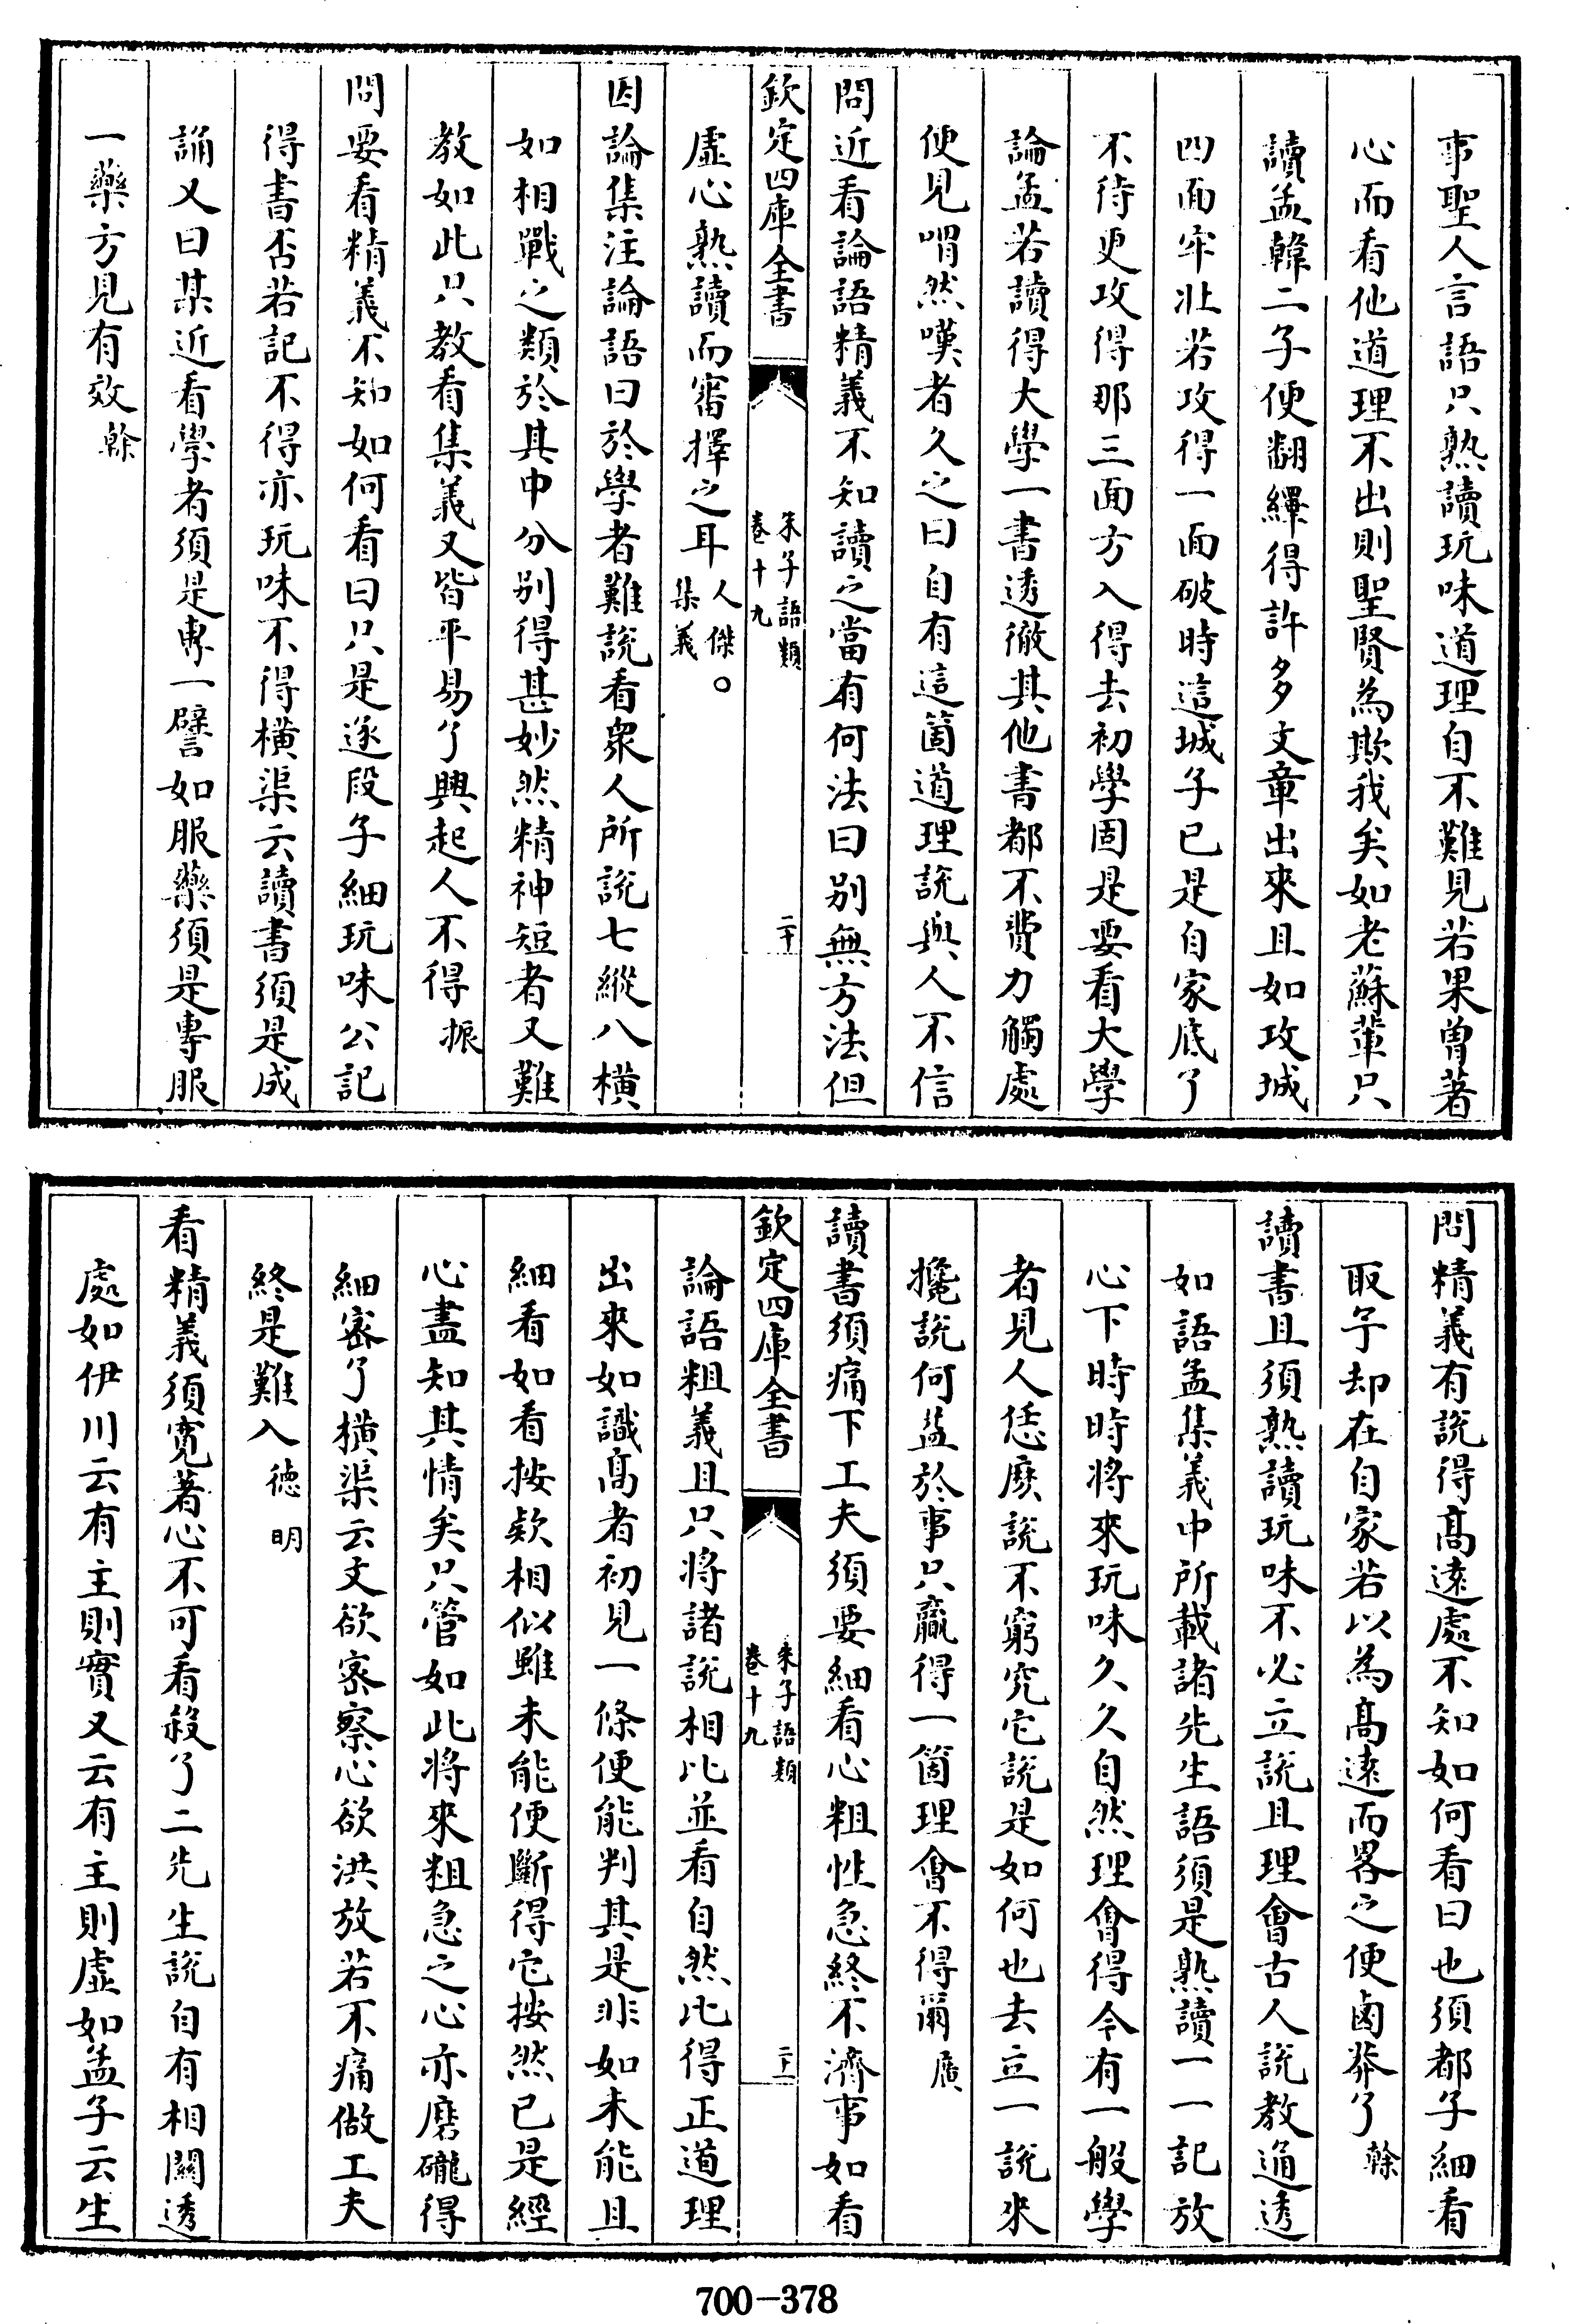 事聖人言語只熟讀玩味道理自不難見若果曽著
心而看他道理不出則聖賢為欺我矣如老蘇輩只
讀孟韓二子便翻繹得許多文章出來且如攻城
四面牢壯若攻得一面破時這城子已是自家底了
不待更攻得那三面方入得去初學固是要看大學
論孟若讀得大學一書透徹其他書都不費力觸處
便見喟然嘆者久之曰自有這箇道理説與人不信
問近看論語精義不知讀之當有何法曰别無方法但
欽定四庫全書
朱子語類
卷十九
二十
虛心熟讀而審擇之耳人傑。
集義
因論集注論語曰於學者難説看衆人所説七縱八横
如相戰之類於其中分别得甚妙然精神短者又難
教如此只教看集義又皆平易了興起人不得振
問要看精義不知如何看曰只是逐段子細玩味公記
得書否若記不得亦玩味不得横渠云讀書須是成
誦又曰某近看學者須是專一譬如服藥須是專服
一藥方見有效榦
問精義有説得髙逺處不知如何看曰也須都子細看
取予却在自家若以為髙逺而畧之便鹵莽了榦
讀書且須熟讀玩味不必立説且理會古人説教通透
如語孟集義中所載諸先生語須是熟讀一一記放
心下時時将來玩味久久自然理會得今有一般學
者見人恁麽説不窮究它説是如何也去立一説來
攙説何益於事只贏得一箇理會不得爾廣
讀書須痛下工夫須要細看心粗性急終不濟事如看
欽定四庫全書
朱子語類
卷十九
二十一
論語精義且只将諸説相比並看自然比得正道理
出來如識髙者初見一條便能判其是非如未能且
細看如看按欵相似雖未能便斷得它按然已是經
心盡知其情矣只管如此将來粗急之心亦磨礲得
細宻了横渠云文欲宻察心欲洪放若不痛做工夫
終是難入徳明
看精義須寛著心不可看殺了二先生説自有相關透
處如伊川云有主則實又云有主則虛如孟子云生
700—378